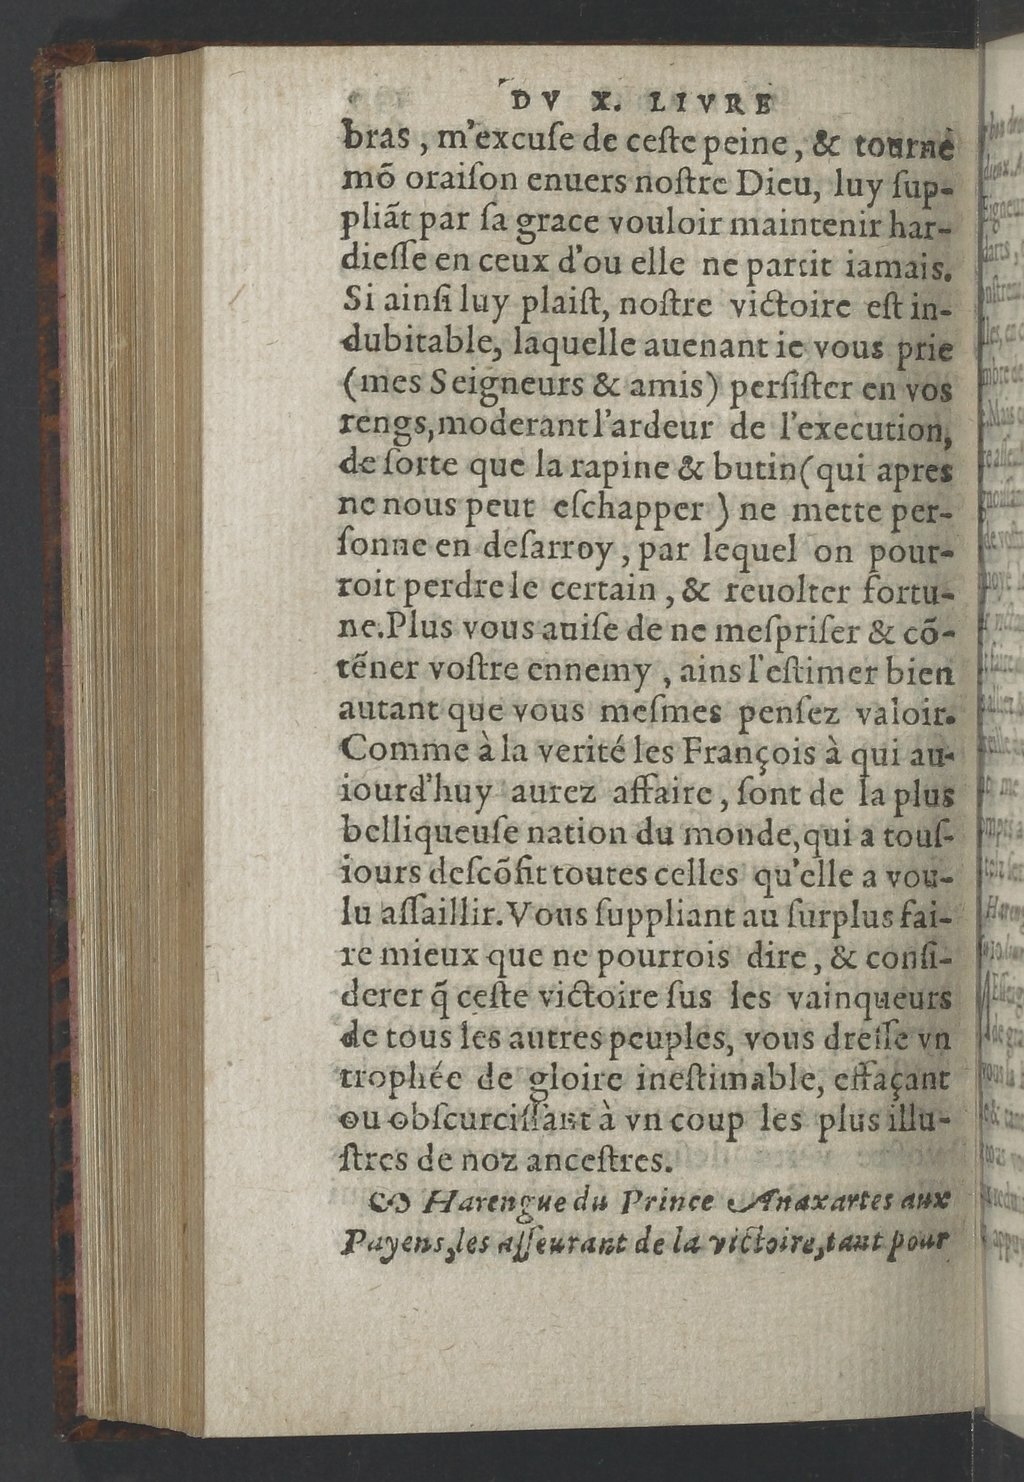 DV X. LIVRE
bras, m'excuſe de ceſte peine, & tourne
mō oraiſon enuers noſtre Dieu, luy ſup-
pliāt par ſa grace vouloir maintenir har-
dieſſe en ceux d'ou elle ne partit iamais.
Si ainſi luy plaiſt, noſtre victoire eſt in-
dubitable, laquelle auenant ie vous prie
(mes Seigneurs & amis) perſiſter en vos
rengs, moderant l'ardeur de l'execution,
de ſorte que la rapine & butin (qui apres
ne nous peut eſchapper) ne mette per-
ſonne en deſarroy, par lequel on pour-
roit perdre le certain, & reuolter fortu-
ne. Plus vous auiſe de ne meſpriſer & cō-
tēner voſtre ennemy, ains l'eſtimer bien
autant que vous meſmes penſez valoir.
Comme à la verité les François à qui au-
iourd'huy aurez affaire, ſont de la plus
belliqueuſe nation du monde, qui a touſ-
iours deſcōfit toutes celles qu'elle a vou-
lu aſſaillir. Vous ſuppliant au ſurplus fai-
re mieux que ne pourrois dire, & conſi-
derer q̃ ceſte victoire ſus les vainqueurs
de tous les autres peuples, vous dreſſe vn
trophée de gloire ineſtimable, effaçant
ou obſcurciſſant à vn coup les plus illu-
ſtres de noz anceſtres.
Harengue du Prince Anaxartes aux
Payens, les aſſeurant de la victoire, tant pour